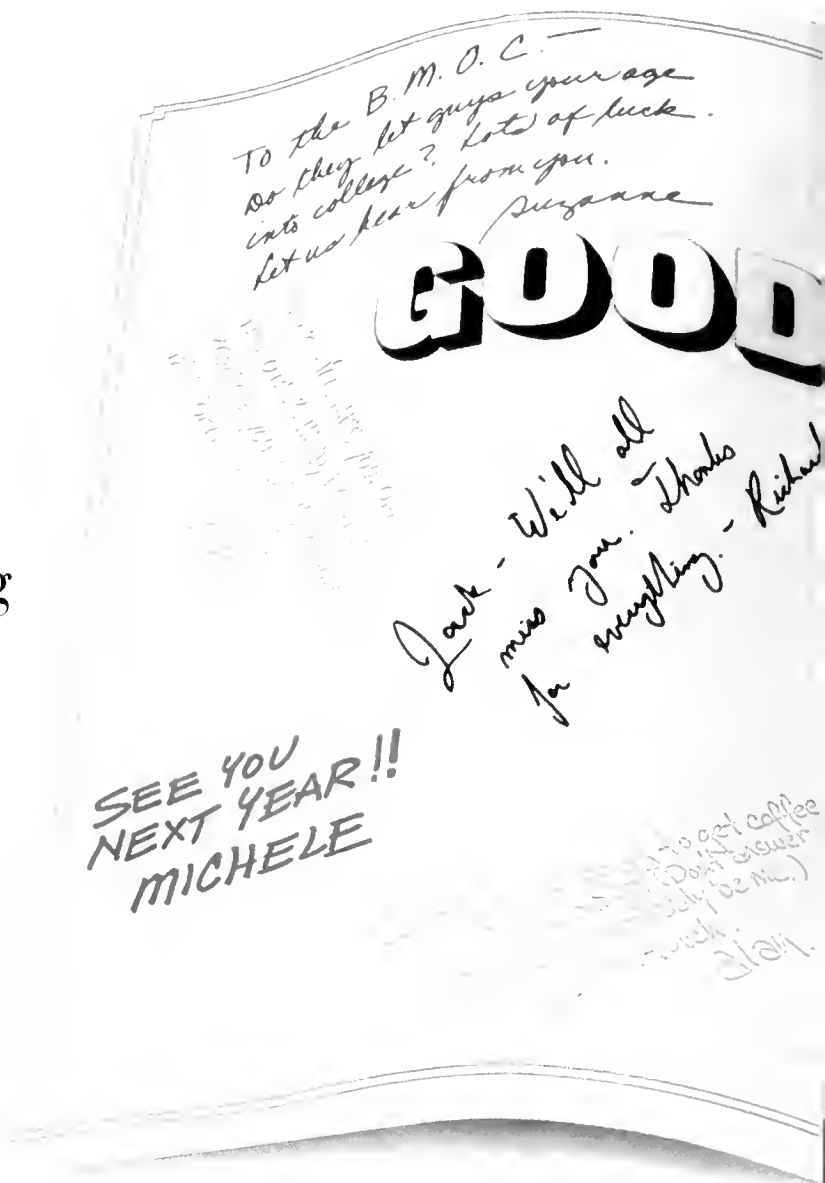 To the B.M.O.C.—
Do they let guys your age
into college? Lots of luck.
Let us hear from you.
Suzanne
GOOD
Jack - We'll all
miss you. Thanks
for everything. - Richard
SEE YOU
NEXT YEAR!!
MICHELE
to get coffee
(Don't answer
be me.)
Alan.